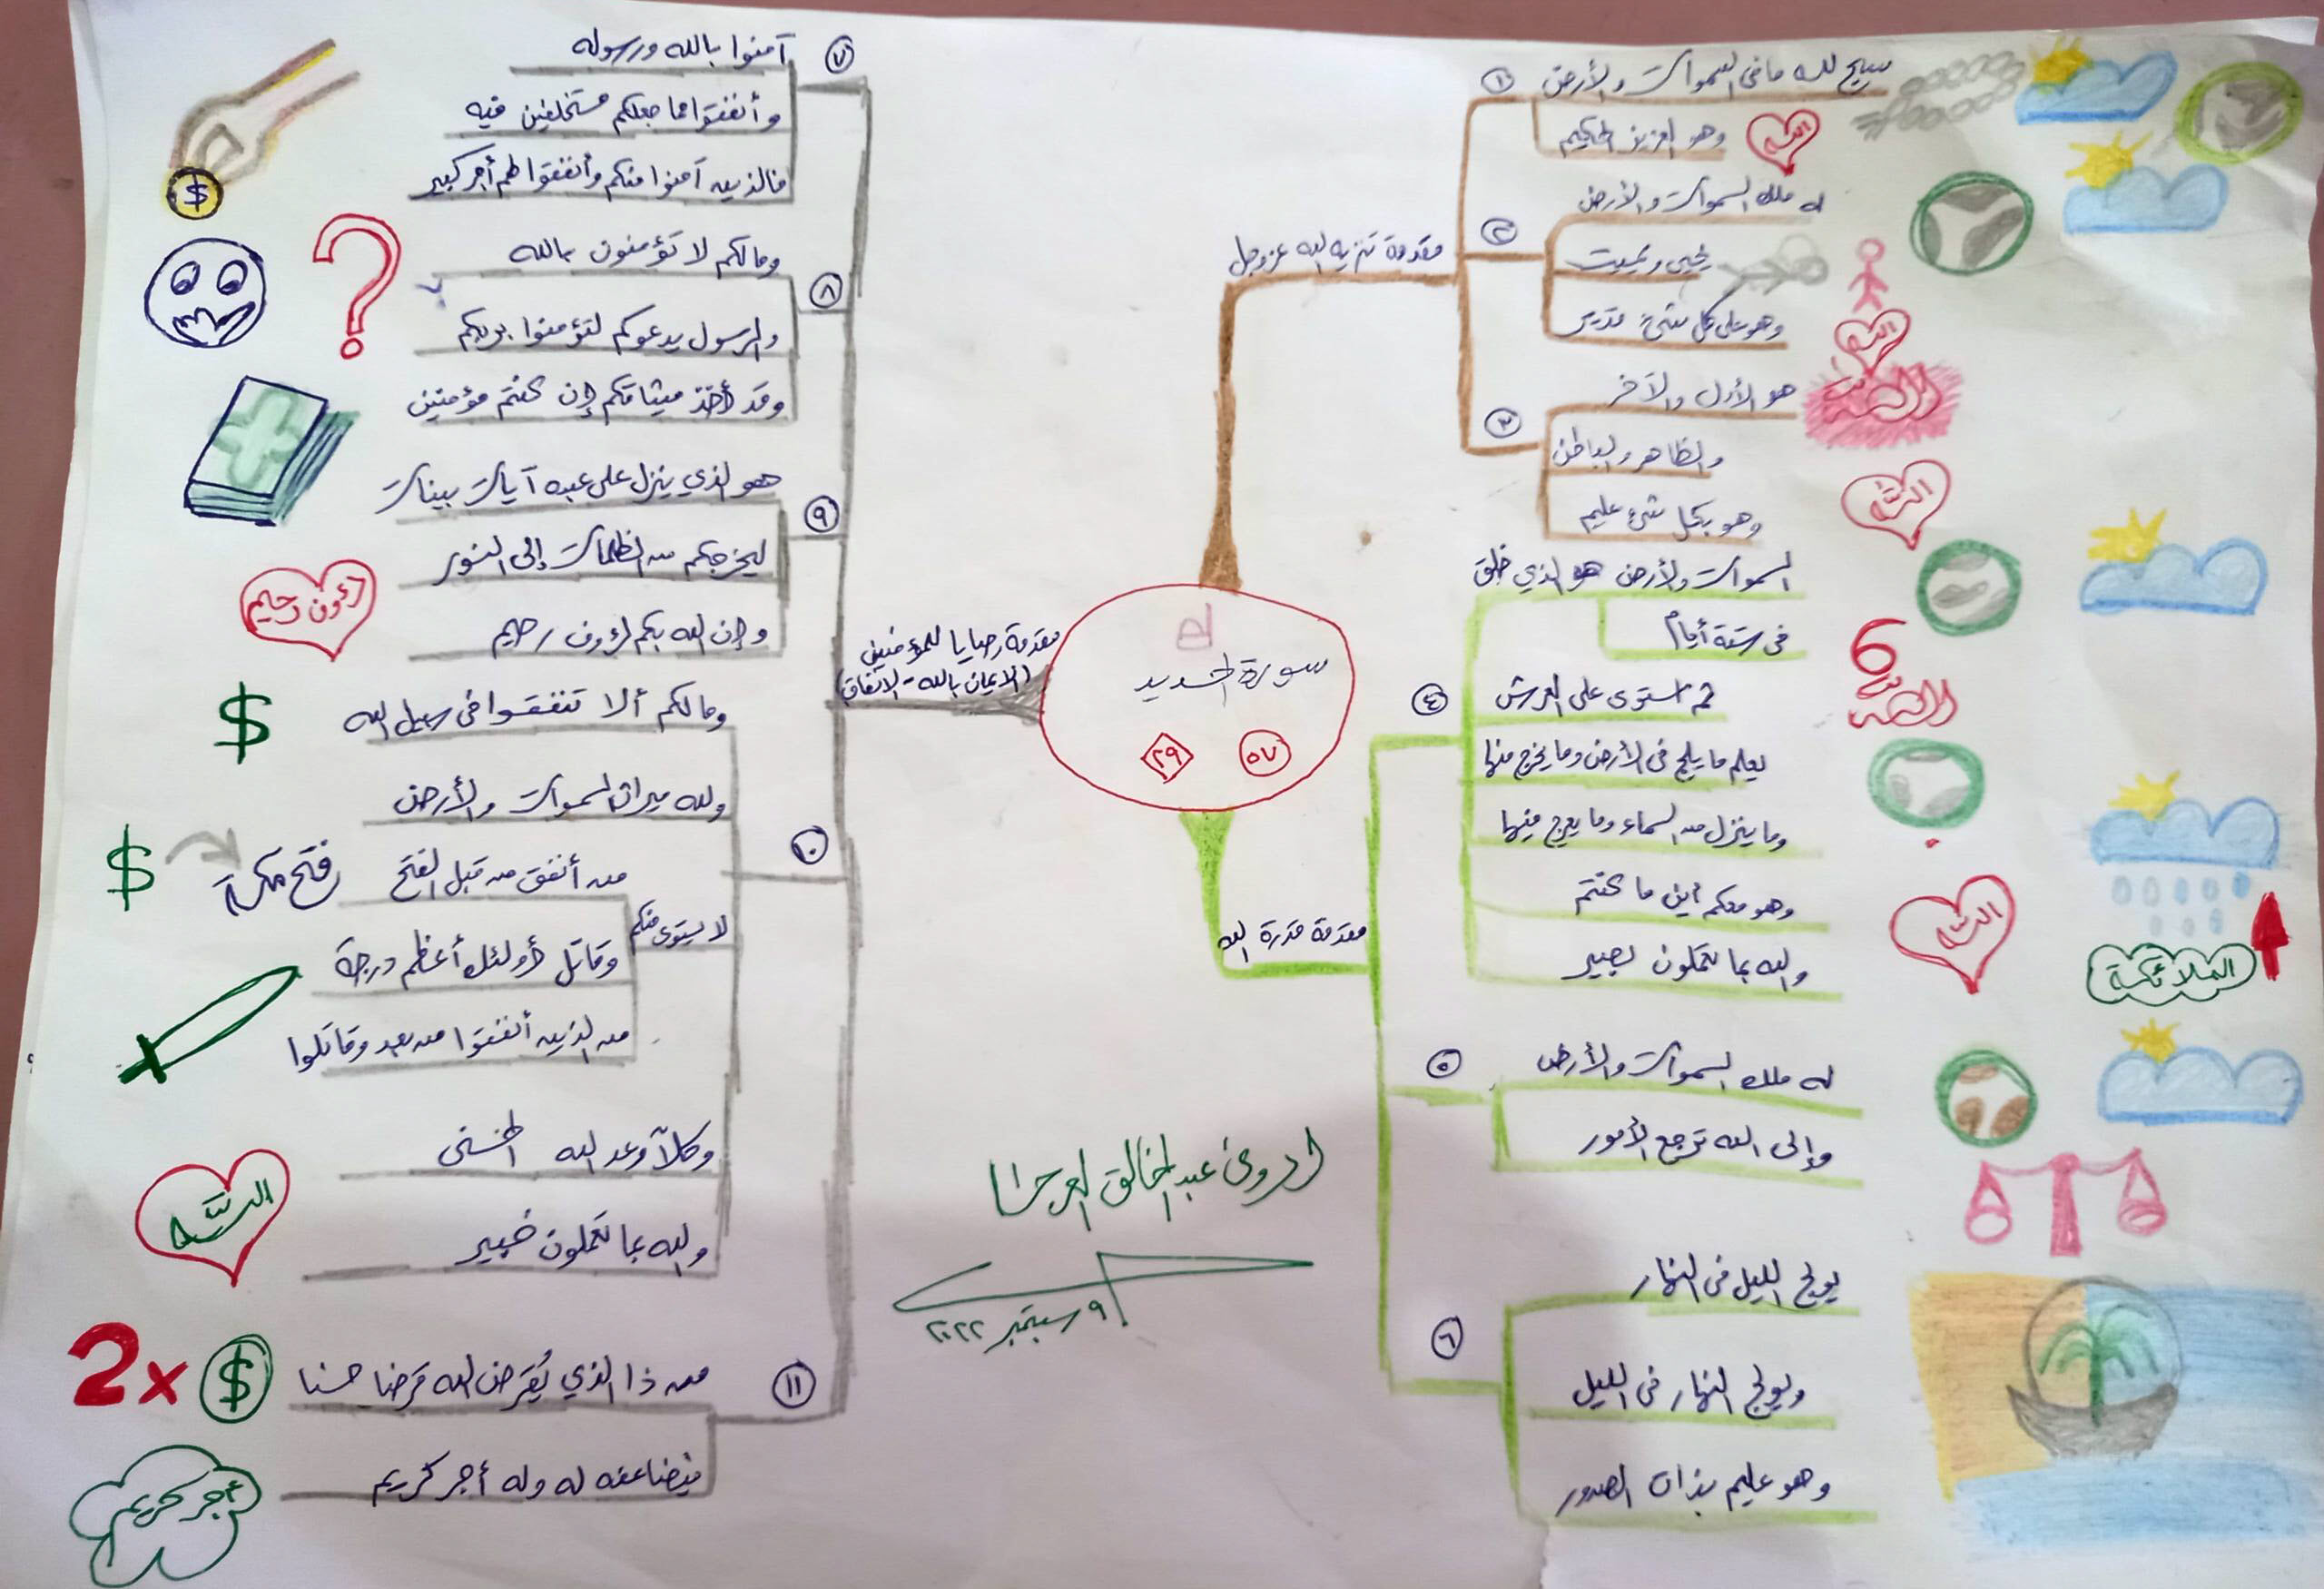 سورة الحديد
٥٧
٢٩
مقدمة تنزيه الله عز وجل
١
سبح لله ما في السموات والأرض
وهو العزيز الحكيم
الله
٢
له ملك السموات والأرض
يحيي ويميت
وهو على كل شئ قدير
الله
٣
هو الأول والآخر
والظاهر والباطن
وهو بكل شئ عليم
الله
مقدمة قدرة الله
٤
السموات والأرض هو الذي خلق
في ستة أيام
6
ثم استوى على العرش
يعلم ما يلج في الأرض وما يخرج منها
وما ينزل من السماء وما يعرج فيها
وهو معكم أين ما كنتم
والله بما تعملون بصير
الله
الملائكة
٥
له ملك السموات والأرض
وإلى الله ترجع الأمور
٦
يولج الليل في النهار
ويولج النهار في الليل
وهو عليم بذات الصدور
مقدمة وصايا للمؤمنين
(الايمان بالله - الانفاق)
٧
آمنوا بالله ورسوله
وأنفقوا مما جعلكم مستخلفين فيه
فالذين آمنوا منكم وأنفقوا لهم أجر كبير
$
٨
وما لكم لا تؤمنون بالله
والرسول يدعوكم لتؤمنوا بربكم
وقد أخذ ميثاقكم إن كنتم مؤمنين
?
٩
هو الذي ينزل على عبده آيات بينات
ليخرجكم من الظلمات إلى النور
وإن الله بكم لرؤوف رحيم
رءوف رحيم
١٠
وما لكم ألا تنفقوا في سبيل الله
$
ولله ميراث السموات والأرض
لا يستوي منكم
من أنفق من قبل الفتح
$ فتح مكة
وقاتل أولئك أعظم درجة
من الذين أنفقوا من بعد وقاتلوا
وكلا وعد الله الحسنى
والله بما تعملون خبير
الله
١١
من ذا الذي يُقرض الله قرضا حسنا
2x $
فيضاعفه له وله أجر كريم
أجر كريم
عبد الخالق
٩ سبتمبر ٢٠٢٢